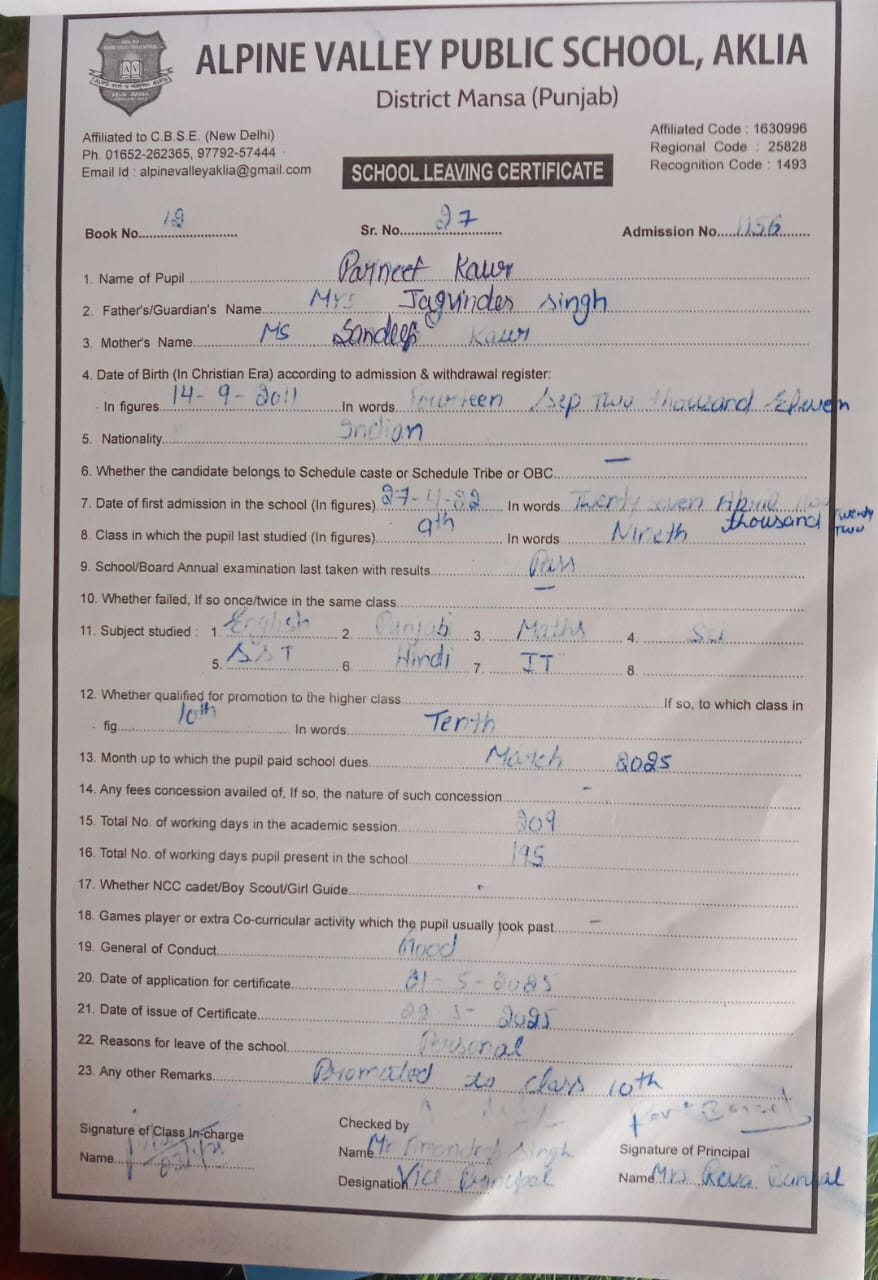 ALPINE VALLEY PUBLIC SCHOOL, AKLIA
District Mansa (Punjab)
Affiliated to C.B.S.E. (New Delhi)
Ph. 01652-262365, 97792-57444
Email Id : alpinevalleyaklia@gmail.com
Affiliated Code : 1630996
Regional Code : 25828
Recognition Code : 1493
SCHOOL LEAVING CERTIFICATE
Book No. 12 Sr. No. 27 Admission No. 1156
1. Name of Pupil Parneet Kaur
2. Father's/Guardian's Name Jagvinder singh
3. Mother's Name Ms Sandeep Kaur
4. Date of Birth (In Christian Era) according to admission & withdrawal register:
In figures 14-9-2011 In words Fourteen Sep Two thousand Eleven
5. Nationality Indian
6. Whether the candidate belongs to Schedule caste or Schedule Tribe or OBC. —
7. Date of first admission in the school (In figures) 27-4-22 In words Twenty seven April Two thousand Twenty Two
8. Class in which the pupil last studied (In figures) 9th In words Nineth
9. School/Board Annual examination last taken with results. Pass
10. Whether failed, If so once/twice in the same class —
11. Subject studied : 1. English 2. Punjabi 3. Maths 4. Sci
5. SST 6. Hindi 7. IT 8.
12. Whether qualified for promotion to the higher class If so, to which class in
fig. 10th In words Tenth
13. Month up to which the pupil paid school dues March 2025
14. Any fees concession availed of, If so, the nature of such concession -
15. Total No. of working days in the academic session 209
16. Total No. of working days pupil present in the school 195
17. Whether NCC cadet/Boy Scout/Girl Guide -
18. Games player or extra Co-curricular activity which the pupil usually took past -
19. General of Conduct Good
20. Date of application for certificate 21-5-2025
21. Date of issue of Certificate 29-5-2025
22. Reasons for leave of the school Personal
23. Any other Remarks Promoted to class 10th
Signature of Class In-charge
Name
Checked by
Name Mr Amandeep Singh
Designation Vice Principal
Signature of Principal
Name Mrs